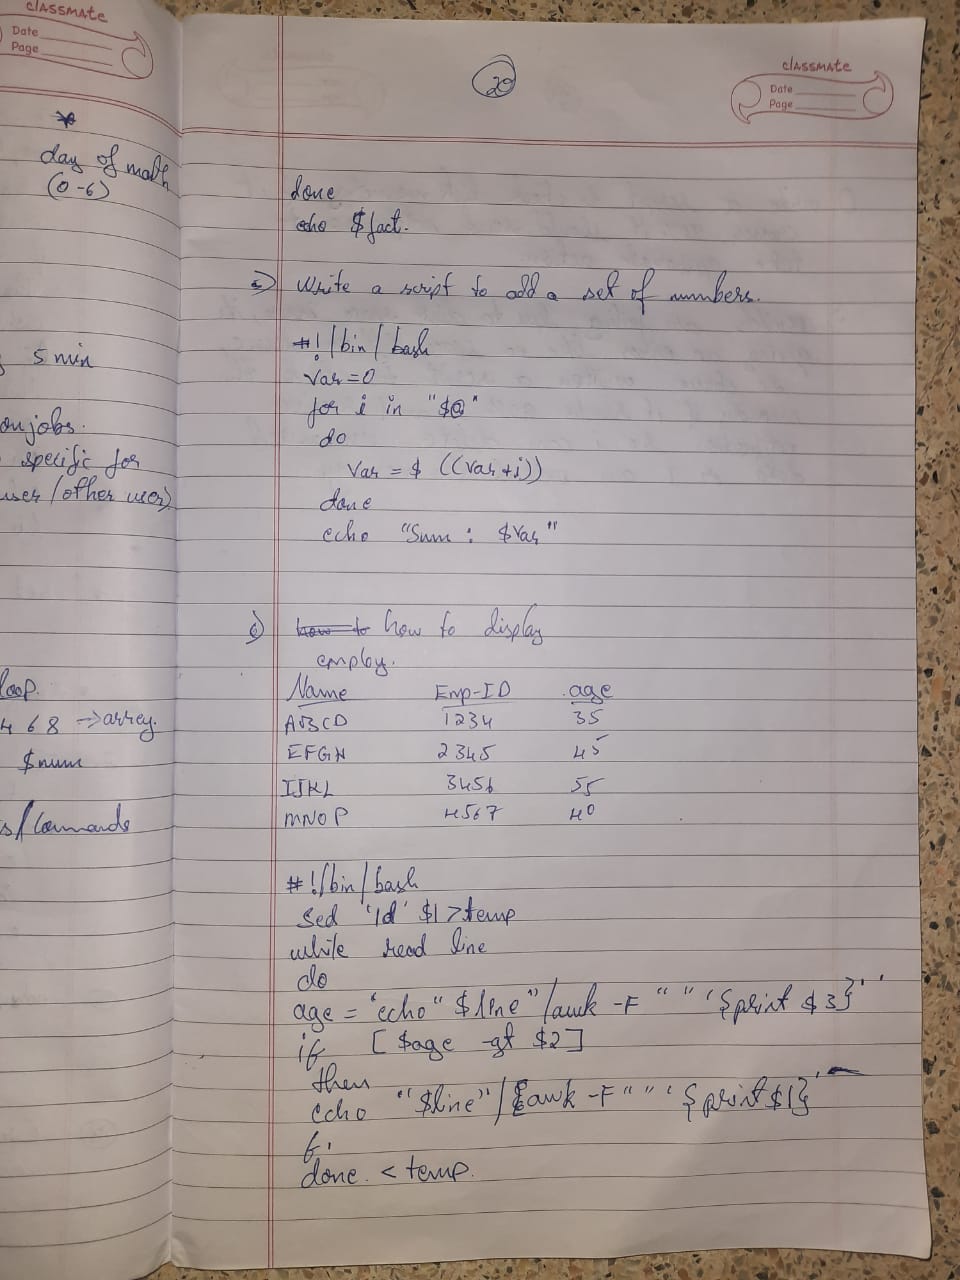 classmate
Date
Page
*
day of math
(0-6)
5 min
on jobs.
specific for
user / other user)
loop.
4 6 8 -> arrey.
$num
s/Commands
20
classmate
Date
Page
done
echo $fact.
5) Write a script to add a set of numbers.
#!/bin/bash
Var=0
for i in "$@"
do
Var = $ ((Var+i))
done
echo "Sum : $Var"
6) how to how to display
employ.
Name Emp-ID age
ABCD 1234 35
EFGH 2345 45
IJKL 3456 55
MNOP 4567 40
#!/bin/bash
sed '1d' $1 >temp
while read line
do
age = 'echo "$line"/awk -F " " '{print $3}''
if [ $age -gt $2]
then
echo "$line"/awk -F " " '{print $1}'
fi
done. < temp.